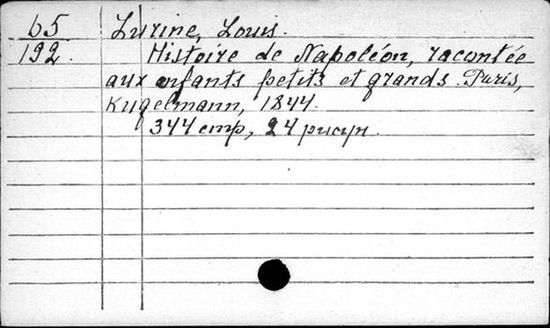 65 Lurine, Louis.
192. Histoire de Napoléon, racontée
aux enfants petits et grands. Paris,
Kugelmann, 1844.
344 стр., 24 рисун.